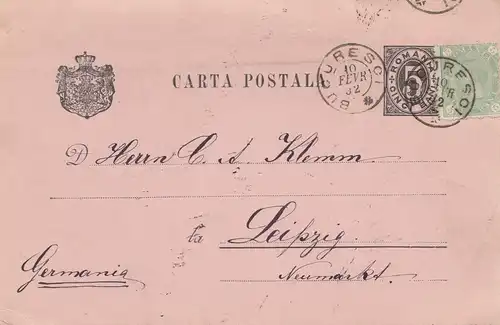 CARTA POSTALA
BUCURESCI
10
FEVR
82
ROMANIA
5
CINCI
BUCURESCI
10
Herrn C. A. Klemm
la Leipzig
Neumarkt.
Germania